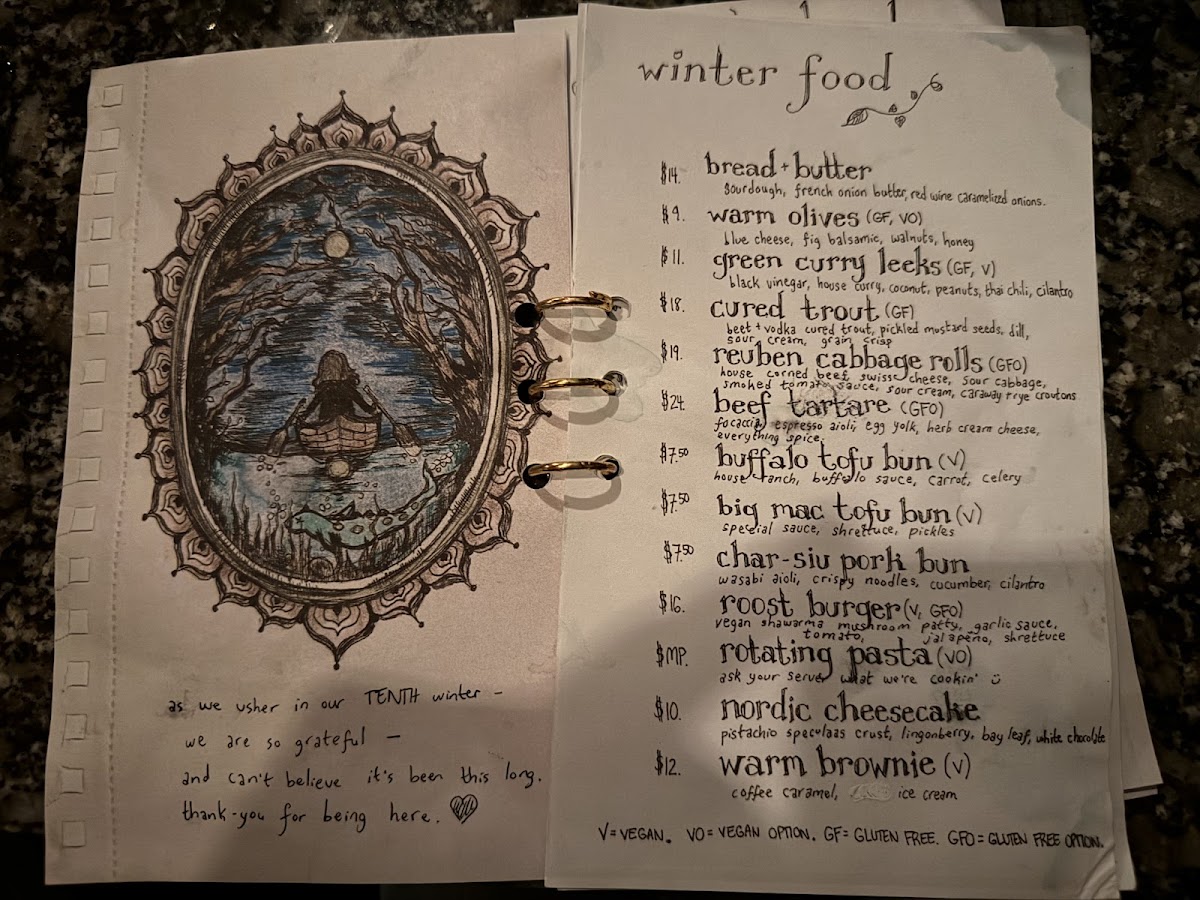 as we usher in our TENTH winter -
we are so grateful -
and can't believe it's been this long.
thank-you for being here.
winter food
$14. bread + butter
sourdough, french onion butter, red wine caramelized onions.
$9. warm olives (GF, VO)
blue cheese, fig balsamic, walnuts, honey
$11. green curry leeks (GF, V)
black vinegar, house curry, coconut, peanuts, thai chili, cilantro
$18. cured trout (GF)
beet + vodka cured trout, pickled mustard seeds, dill,
sour cream, grain crisp
$19. reuben cabbage rolls (GFO)
house corned beef, swiss cheese, sour cabbage,
smoked tomato sauce, sour cream, caraway + rye croutons
$24. beef tartare (GFO)
focaccia, espresso aioli, egg yolk, herb cream cheese,
everything spice.
$7.50 buffalo tofu bun (V)
house ranch, buffalo sauce, carrot, celery
$7.50 big mac tofu bun (V)
special sauce, shrettuce, pickles
$7.50 char-siu pork bun
wasabi aioli, crispy noodles, cucumber, cilantro
$16. roost burger (V, GFO)
vegan shawarma mushroom patty, garlic sauce,
tomato, jalapeño, shrettuce
$MP. rotating pasta (VO)
ask your server what we're cookin'
$10. nordic cheesecake
pistachio speculaas crust, lingonberry, bay leaf, white chocolate
$12. warm brownie (V)
coffee caramel, ice cream
V = VEGAN. VO = VEGAN OPTION. GF = GLUTEN FREE. GFO = GLUTEN FREE OPTION.